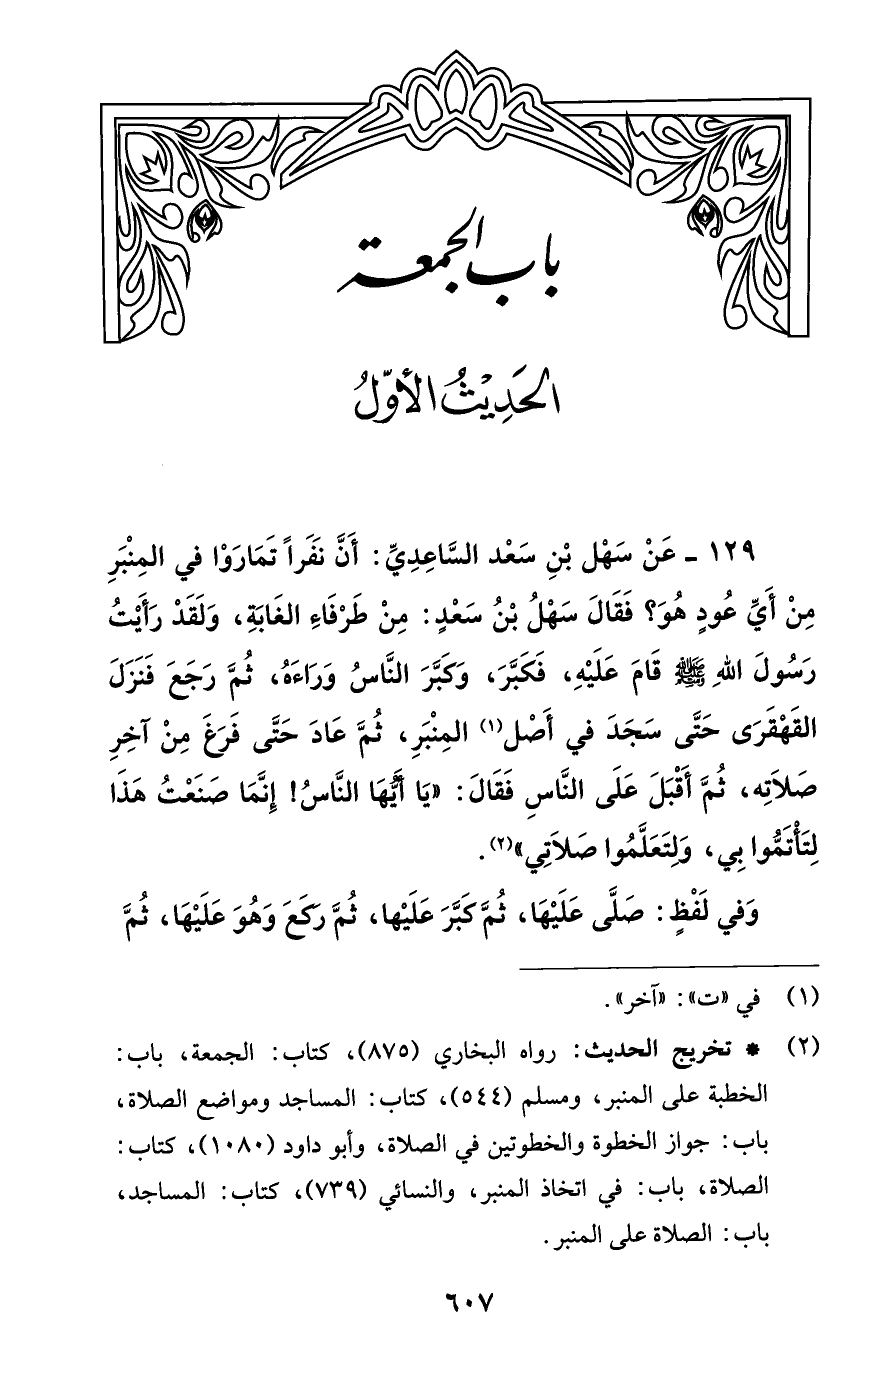 باب الجمعة
الحَدِيْثُ الأوّلُ
١٢٩ ـ عَنْ سَهْلِ بْنِ سَعْد السَّاعِدِيِّ: أَنَّ نَفَراً تَمَارَوْا في المِنْبَرِ
مِنْ أَيِّ عُودٍ هُوَ؟ فَقَالَ سَهْلُ بْنُ سَعْدٍ: مِنْ طَرْفَاءِ الغَابَةِ، وَلَقَدْ رَأَيْتُ
رَسُولَ اللهِ ﷺ قَامَ عَلَيْهِ، فَكَبَّرَ، وَكَبَّرَ النَّاسُ وَرَاءَهُ، ثُمَّ رَجَعَ فَنَزَلَ
القَهْقَرَى حَتَّى سَجَدَ في أَصْلِ(١) المِنْبَرِ، ثُمَّ عَادَ حَتَّى فَرَغَ مِنْ آخِرِ
صَلاَتِه، ثُمَّ أَقْبَلَ عَلَى النَّاسِ فَقَالَ: «يَا أَيُّهَا النَّاسُ! إِنَّمَا صَنَعْتُ هَذَا
لِتَأْتَمُّوا بِي، وَلِتَعَلَّمُوا صَلاَتِي»(٢).
وَفي لَفْظٍ: صَلَّى عَلَيْهَا، ثُمَّ كَبَّرَ عَلَيْها، ثُمَّ رَكَعَ وَهُوَ عَلَيْهَا، ثُمَّ
(١) في «ت»: «آخر».
(٢) * تخريج الحديث: رواه البخاري (٨٧٥)، كتاب: الجمعة، باب:
الخطبة على المنبر، ومسلم (٥٤٤)، كتاب: المساجد ومواضع الصلاة،
باب: جواز الخطوة والخطوتين في الصلاة، وأبو داود (١٠٨٠)، كتاب:
الصلاة، باب: في اتخاذ المنبر، والنسائي (٧٣٩)، كتاب: المساجد،
باب: الصلاة على المنبر.
٦٠٧